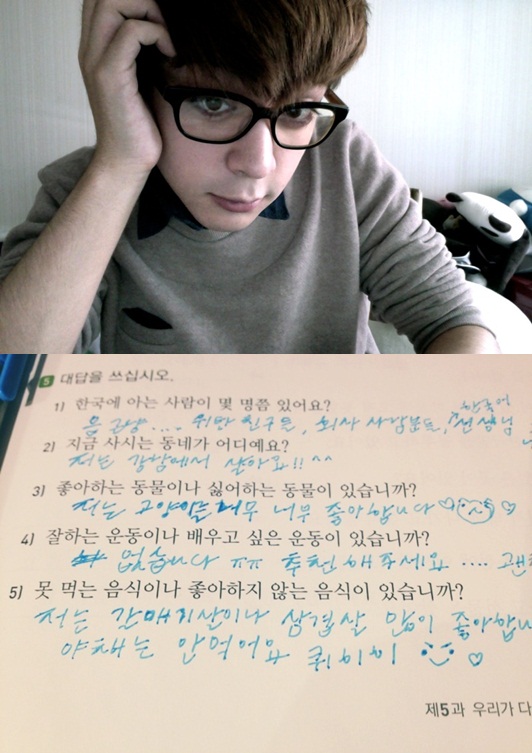 5 대답을 쓰십시오.
1) 한국에 아는 사람이 몇 명쯤 있어요?
한국어
음 그냥.... 친구들, 회사 사람분들, 선생님
2) 지금 사시는 동네가 어디예요?
저는 강남에서 살아요!! ^^
3) 좋아하는 동물이나 싫어하는 동물이 있습니까?
저는 고양이를 너무 너무 좋아합니다 ♡ ♡
4) 잘하는 운동이나 배우고 싶은 운동이 있습니까?
없습니다 ㅠㅠ 추천해주세요 ....
5) 못 먹는 음식이나 좋아하지 않는 음식이 있습니까?
저는 갈매기살이나 삼겹살 많이 좋아합니
야채는 안먹어요 ♡
제5과 우리가 다